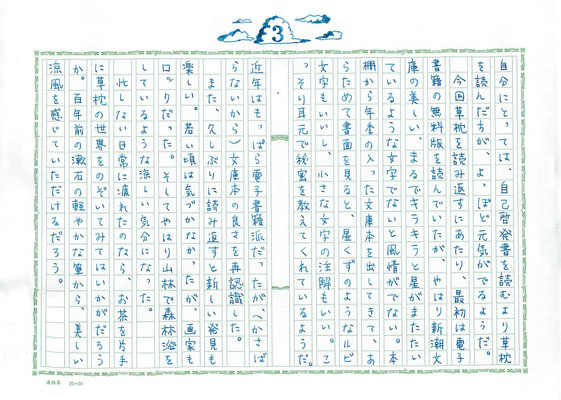 3
自分にとっては、自己啓発書を読むより草枕
を読んだ方が、よっぽど元気がでるようだ。
今回草枕を読み返すにあたり、最初は電子
書籍の無料版を読んでいたが、やはり新潮文
庫の美しい、まるでキラキラと星がまたたい
ているような文字でないと風情がでない。本
棚から年季の入った文庫本を出してきて、あ
らためて書面を見ると、星くずのようなルビ
文字もいいし、小さな文字の注解もいい。こ
っそり耳元で秘密を教えてくれているようだ。
近年はもっぱら電子書籍派だったが（かさば
らないから）文庫本の良さを再認識した。
また、久しぶりに読み返すと新しい発見も
楽しい。若い頃は気づかなかったが、画家も
ロックだった。そしてやはり山林で森林浴を
しているような涼しい気分になった。
忙しない日常に疲れたのなら、お茶を片手
に草枕の世界をのぞいてみてはいかがだろう
か。百年前の漱石の軽やかな筆から、美しい
涼風を感じていただけるだろう。
20×20